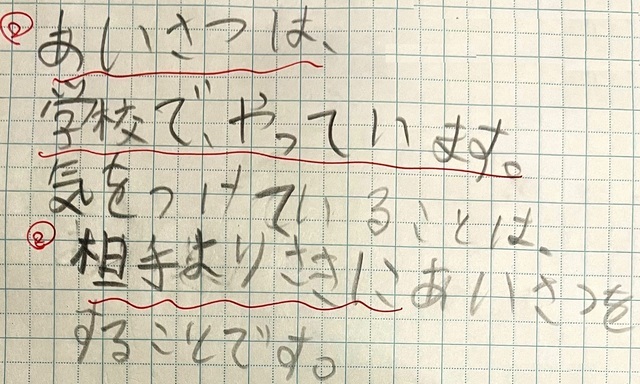 ② あいさつは、
学校で、やっています。
気をつけていることは、
② 相手よりさきにあいさつを
することです。